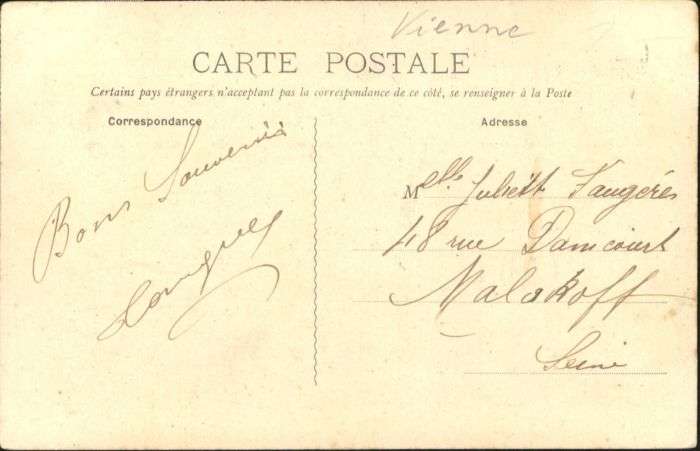 Vienne
CARTE POSTALE
Certains pays étrangers n'acceptant pas la correspondance de ce côté, se renseigner à la Poste
Correspondance
Bons Souvenirs
Adresse
Melle Juliett Faugères
48 rue Damcourt
Malakoff
Seine